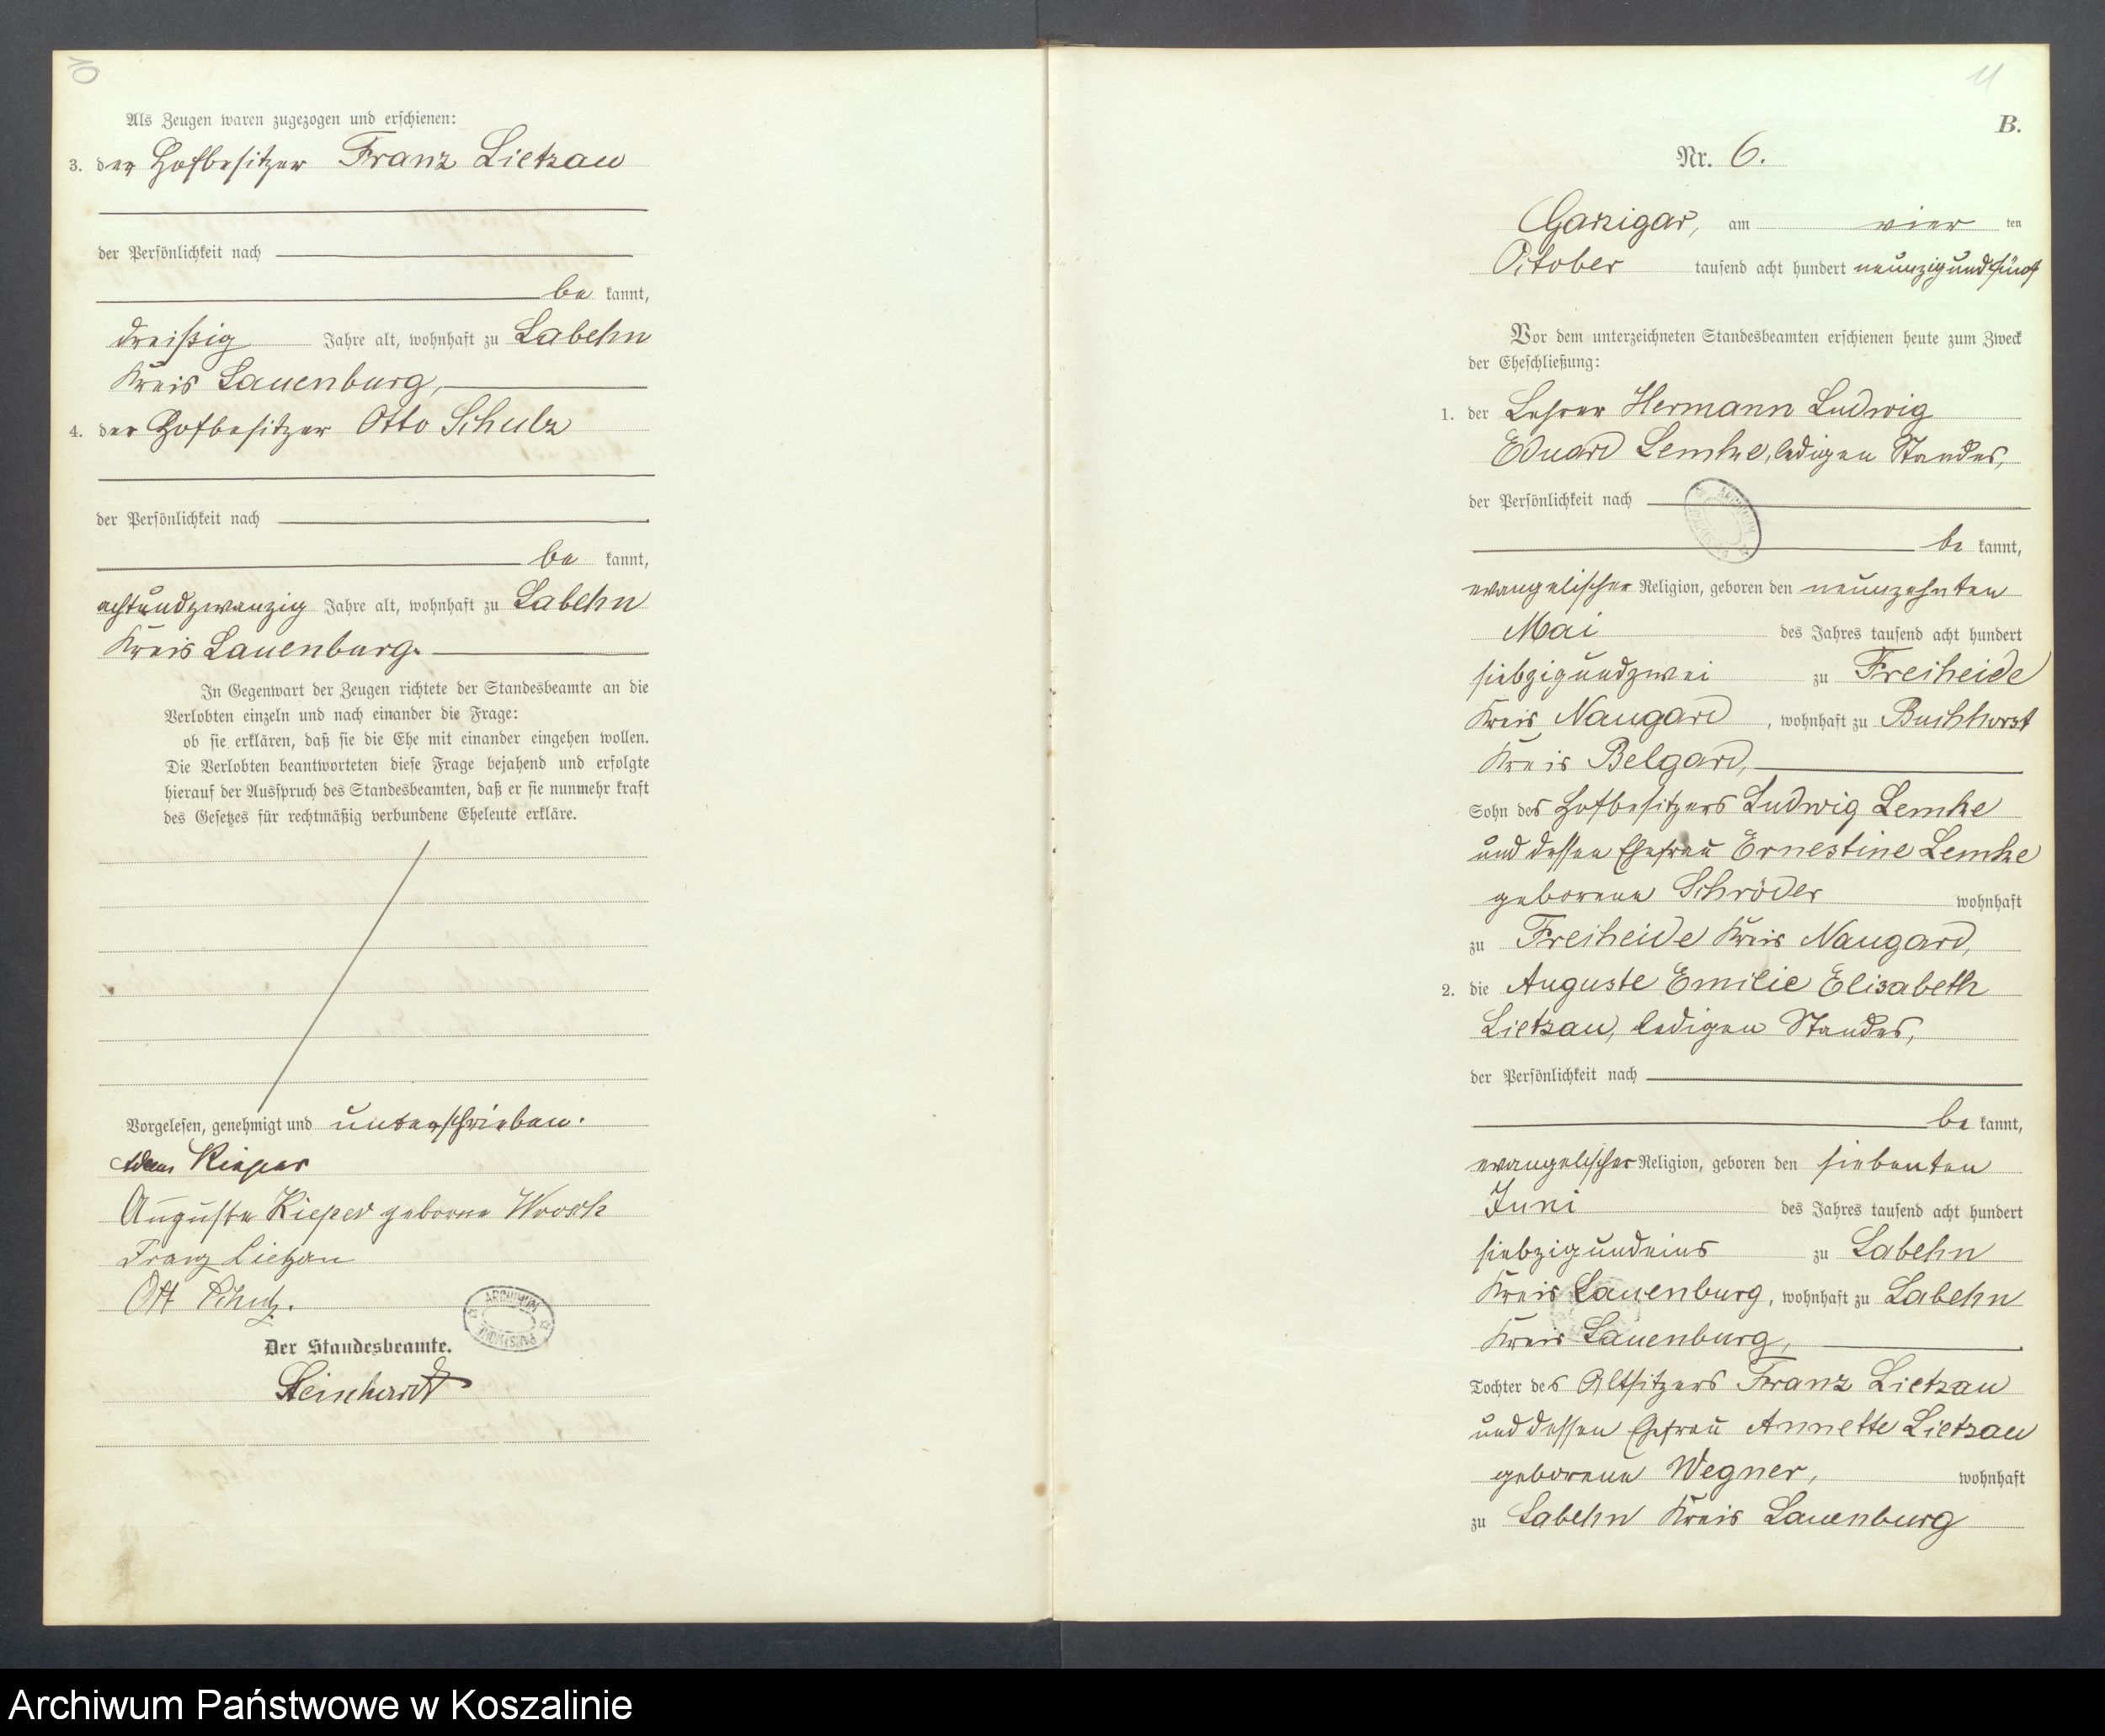 10
Als Zeugen waren zugezogen und erschienen:
3. der Hofbesitzer Franz Lietzau
der Persönlichkeit nach
be kannt,
dreißig Jahre alt, wohnhaft zu Labehn
Kreis Lauenburg,
4. der Hofbesitzer Otto Schulz
der Persönlichkeit nach
be kannt,
achtundzwanzig Jahre alt, wohnhaft zu Labehn
Kreis Lauenburg.
In Gegenwart der Zeugen richtete der Standesbeamte an die
Verlobten einzeln und nach einander die Frage:
ob sie erklären, daß sie die Ehe mit einander eingehen wollen.
Die Verlobten beantworteten diese Frage bejahend und erfolgte
hierauf der Ausspruch des Standesbeamten, daß er sie nunmehr kraft
des Gesetzes für rechtmäßig verbundene Eheleute erkläre.
Vorgelesen, genehmigt und unterschrieben.
Kieper
Auguste Kieper geborne
Franz Lietzau
Otto Schulz.
Der Standesbeamte.
11
B.
Nr. 6.
Garzigar, am vier ten
October tausend acht hundert neunzigundfünf
Vor dem unterzeichneten Standesbeamten erschienen heute zum Zweck
der Eheschließung:
1. der Lehrer Hermann Ludwig
Eduard Lemke, ledigen Standes,
der Persönlichkeit nach
be kannt,
evangelischer Religion, geboren den neunzehnten
Mai des Jahres tausend acht hundert
siebzigundzwei zu Freiheide
Kreis Naugard, wohnhaft zu Buchhorst
Kreis Belgard,
Sohn des Hofbesitzers Ludwig Lemke
und dessen Ehefrau Ernestine Lemke
geborene Schröder wohnhaft
zu Freiheide Kreis Naugard,
2. die Auguste Emilie Elisabeth
Lietzau, ledigen Standes,
der Persönlichkeit nach
be kannt,
evangelischer Religion, geboren den siebenten
Juni des Jahres tausend acht hundert
siebzigundeins zu Labehn
Kreis Lauenburg, wohnhaft zu Labehn
Kreis Lauenburg,
Tochter des Altsitzers Franz Lietzau
und dessen Ehefrau Annette Lietzau
geborene Wegner, wohnhaft
zu Labehn Kreis Lauenburg
Archiwum Państwowe w Koszalinie